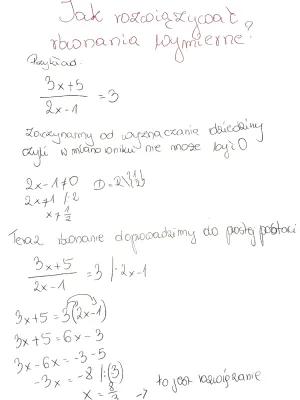 Jak rozwiązywać
równania wymierne?
Przykład:
3x+5
2x-1 = 3
Zaczynamy od wyznaczania dziedziny
czyli w mianowniku nie może być 0
2x-1≠0 D=R\{1/2}
2x≠1 /:2
x≠1/2
Teraz równanie doprowadzimy do postaci
3x+5
2x-1 = 3 /·2x-1
3x+5=3(2x-1)
3x+5=6x-3
3x-6x=-3-5
-3x=-8 /:(3)
x=8/3 → to jest rozwiązanie